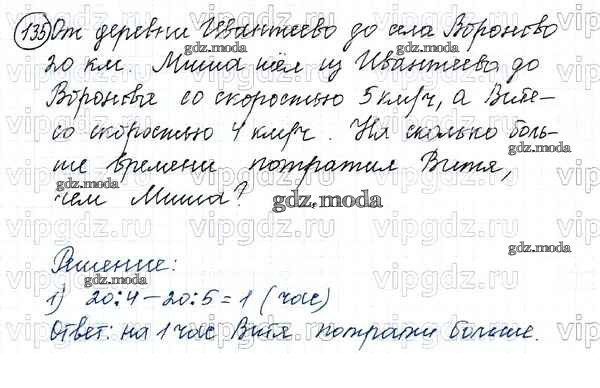 135 От деревни Ивантеево до села Вороново
20 км. Миша шёл из Ивантеево до
Воронова со скоростью 5 км/ч, а Витя-
со скоростью 4 км/ч. На сколько боль-
ше времени потратил Витя,
чем Миша?
Решение:
1) 20:4-20:5=1 (час)
Ответ: на 1 час Витя потратил больше.
gdz.moda
vipgdz.ru